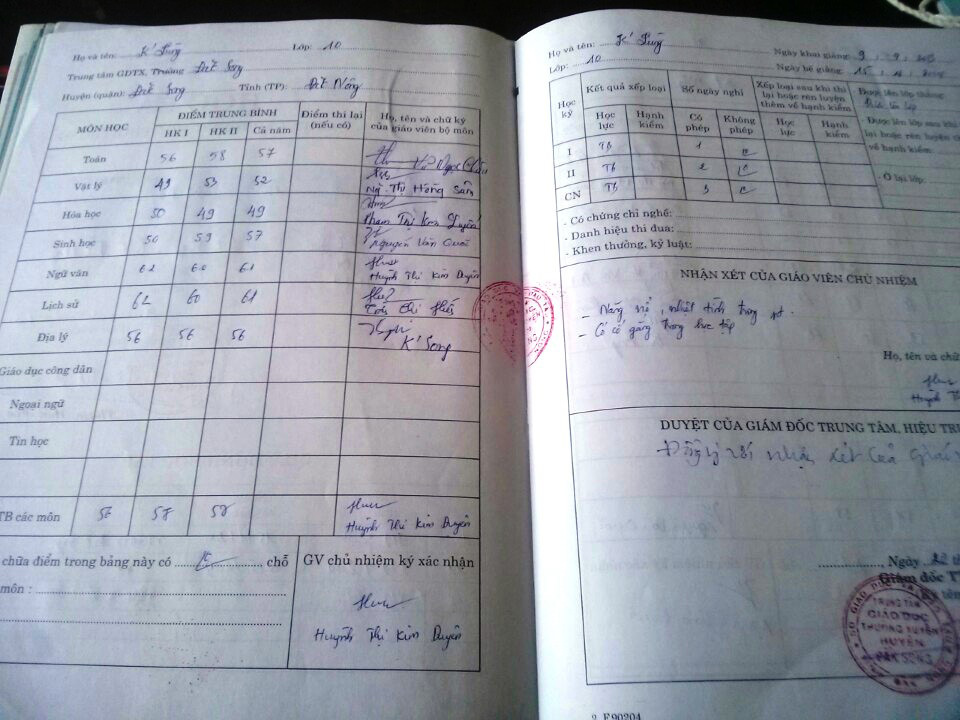 Họ và tên: K' Sường Lớp: 10
Trung tâm GDTX, Trường Đăk Song
Huyện (quận): Đăk Song Tỉnh (TP): Đăk Nông
MÔN HỌC ĐIỂM TRUNG BÌNH Điểm thi lại (nếu có) Họ, tên và chữ ký của giáo viên bộ môn
HK I HK II Cả năm
Toán 56 58 57
Vật lý 49 53 52 Ng. Thị Hồng
Hóa học 50 49 49 Phạm Thị Kim
Sinh học 50 59 57 Nguyễn Văn
Ngữ văn 62 60 61 Huỳnh Thị Kim Duyên
Lịch sử 62 60 61
Địa lý 56 56 56 K' Song
Giáo dục công dân
Ngoại ngữ
Tin học
TB các môn 57 58 58 Huỳnh Thị Kim Duyên
chữa điểm trong bảng này có chỗ
môn :
GV chủ nhiệm ký xác nhận
Huỳnh Thị Kim Duyên
Họ và tên: K' Sường Ngày khai giảng: 9
Lớp: 10 Ngày bế giảng: 15
Học kỳ Kết quả xếp loại Số ngày nghỉ Xếp loại sau khi thi lại hoặc rèn luyện thêm về hạnh kiểm Được lên lớp thẳng
Học lực Hạnh kiểm Có phép Không phép Học lực Hạnh kiểm
Được lên lớp sau khi
lại hoặc rèn luyện
về hạnh kiểm:
- Ở lại lớp:
I Tb 1
II Tb 2
CN Tb 3
- Có chứng chỉ nghề:
- Danh hiệu thi đua:
- Khen thưởng, kỷ luật:
NHẬN XÉT CỦA GIÁO VIÊN CHỦ NHIỆM
- Năng nổ, nhiệt tình trong
- Có cố gắng trong học tập
Họ, tên và chữ
Huỳnh Th
DUYỆT CỦA GIÁM ĐỐC TRUNG TÂM, HIỆU TR
Đồng ý với nhận xét của giáo
Ngày 22
Giám đốc T
TRUNG TÂM
GIÁO DỤC
THƯỜNG XUYÊN
HUYỆN
ĐĂK SONG